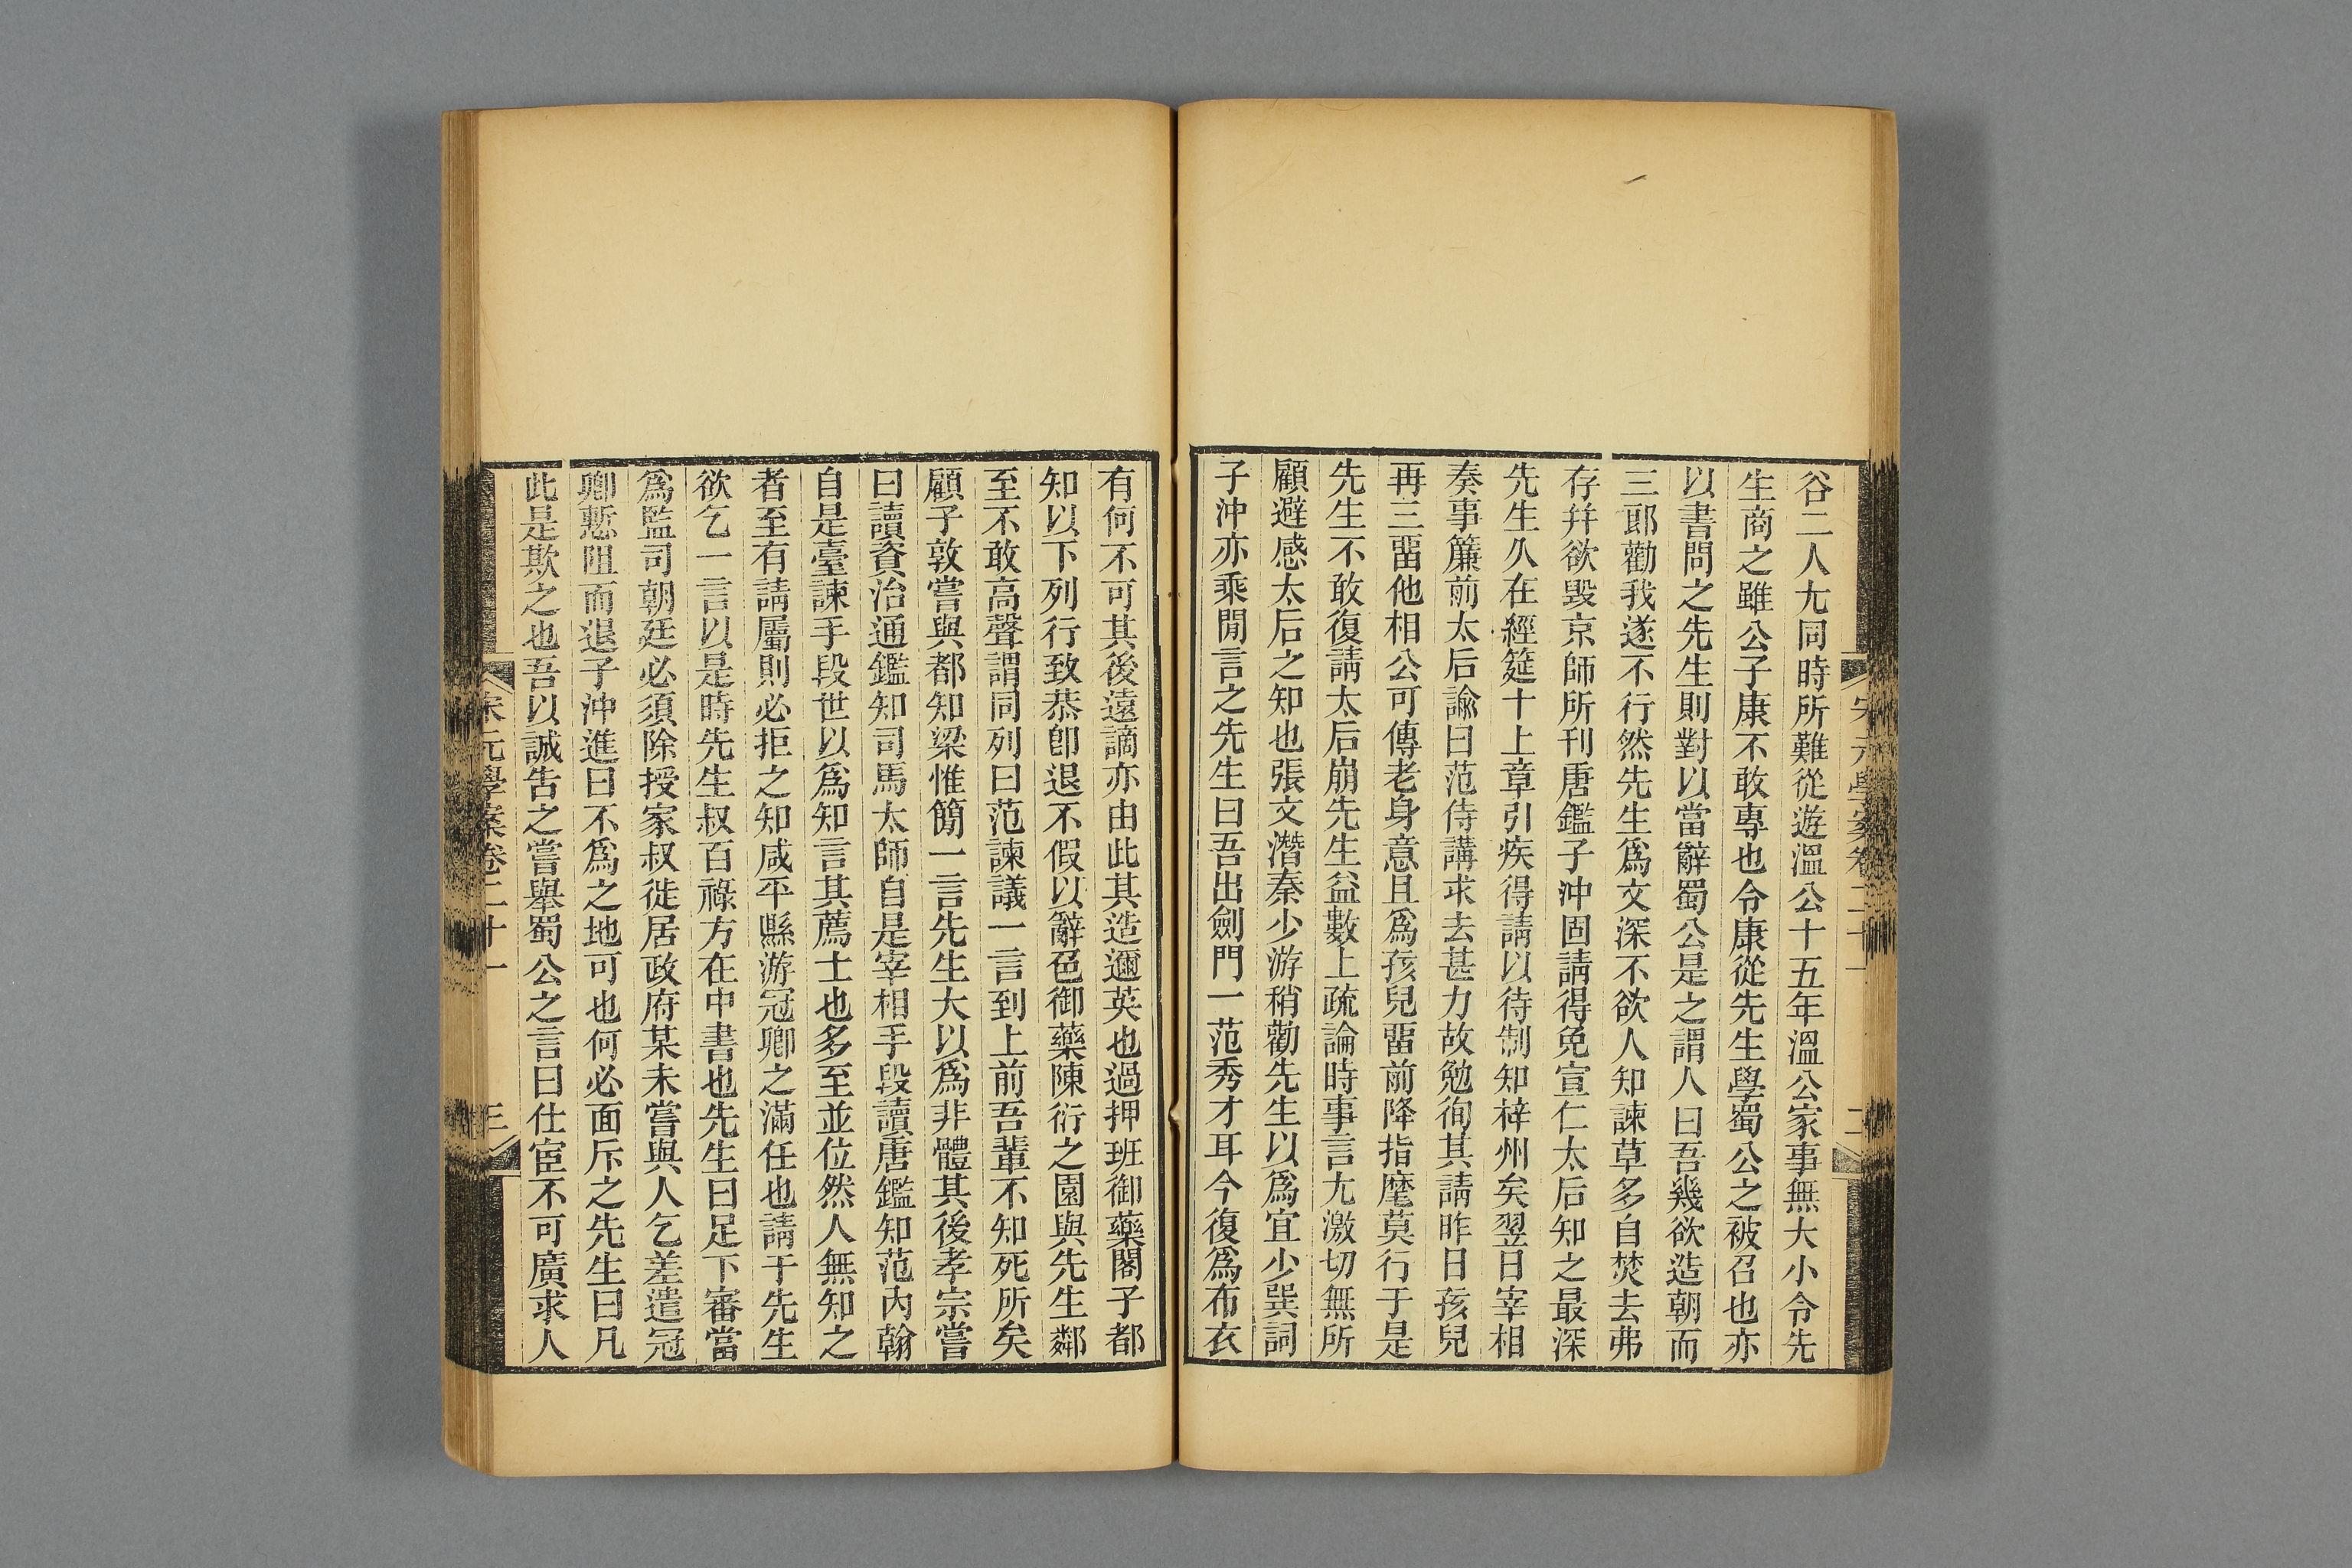 宋元學案卷二十一
二
谷二人尤同時所難從遊溫公十五年溫公家事無大小令先
生商之雖公子康不敢專也令康從先生學蜀公之被召也亦
以書問之先生則對以當辭蜀公是之謂人曰吾幾欲造朝而
三郎勸我遂不行然先生爲文深不欲人知諫草多自焚去弗
存幷欲毀京師所刊唐鑑子沖固請得免宣仁太后知之最深
先生久在經筵十上章引疾得請以待制知梓州矣翌日宰相
奏事簾前太后諭曰范侍講求去甚力故勉徇其請昨日孩兒
再三畱他相公可傳老身意且爲孩兒畱前降指麾莫行于是
先生不敢復請太后崩先生益數上疏論時事言尤激切無所
顧避感太后之知也張文潛秦少游稍勸先生以爲宜少巽詞
子沖亦乘閒言之先生曰吾出劍門一范秀才耳今復爲布衣
有何不可其後遠謫亦由此其造邇英也過押班御藥閣子都
知以下列行致恭卽退不假以辭色御藥陳衍之園與先生鄰
至不敢高聲謂同列曰范諫議一言到上前吾輩不知死所矣
顧子敦嘗與都知梁惟簡一言先生大以爲非體其後孝宗嘗
曰讀資治通鑑知司馬太師自是宰相手段讀唐鑑知范內翰
自是臺諫手段世以爲知言其薦士也多至並位然人無知之
者至有請屬則必拒之知咸平縣游冠卿之滿任也請于先生
欲乞一言以是時先生叔百祿方在中書也先生曰足下審當
爲監司朝廷必須除授家叔徙居政府某未嘗與人乞差遣冠
卿慙阻而退子沖進曰不爲之地可也何必面斥之先生曰凡
此是欺之也吾以誠告之嘗舉蜀公之言曰仕宦不可廣求人
宋元學案卷二十一
三